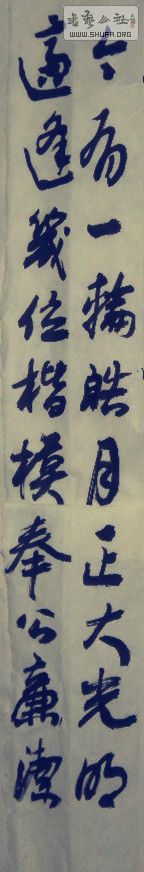 书艺公社
WWW.SHUFA.ORG
今有一輪皓月正大光明
適逢幾位楷模奉公廉潔